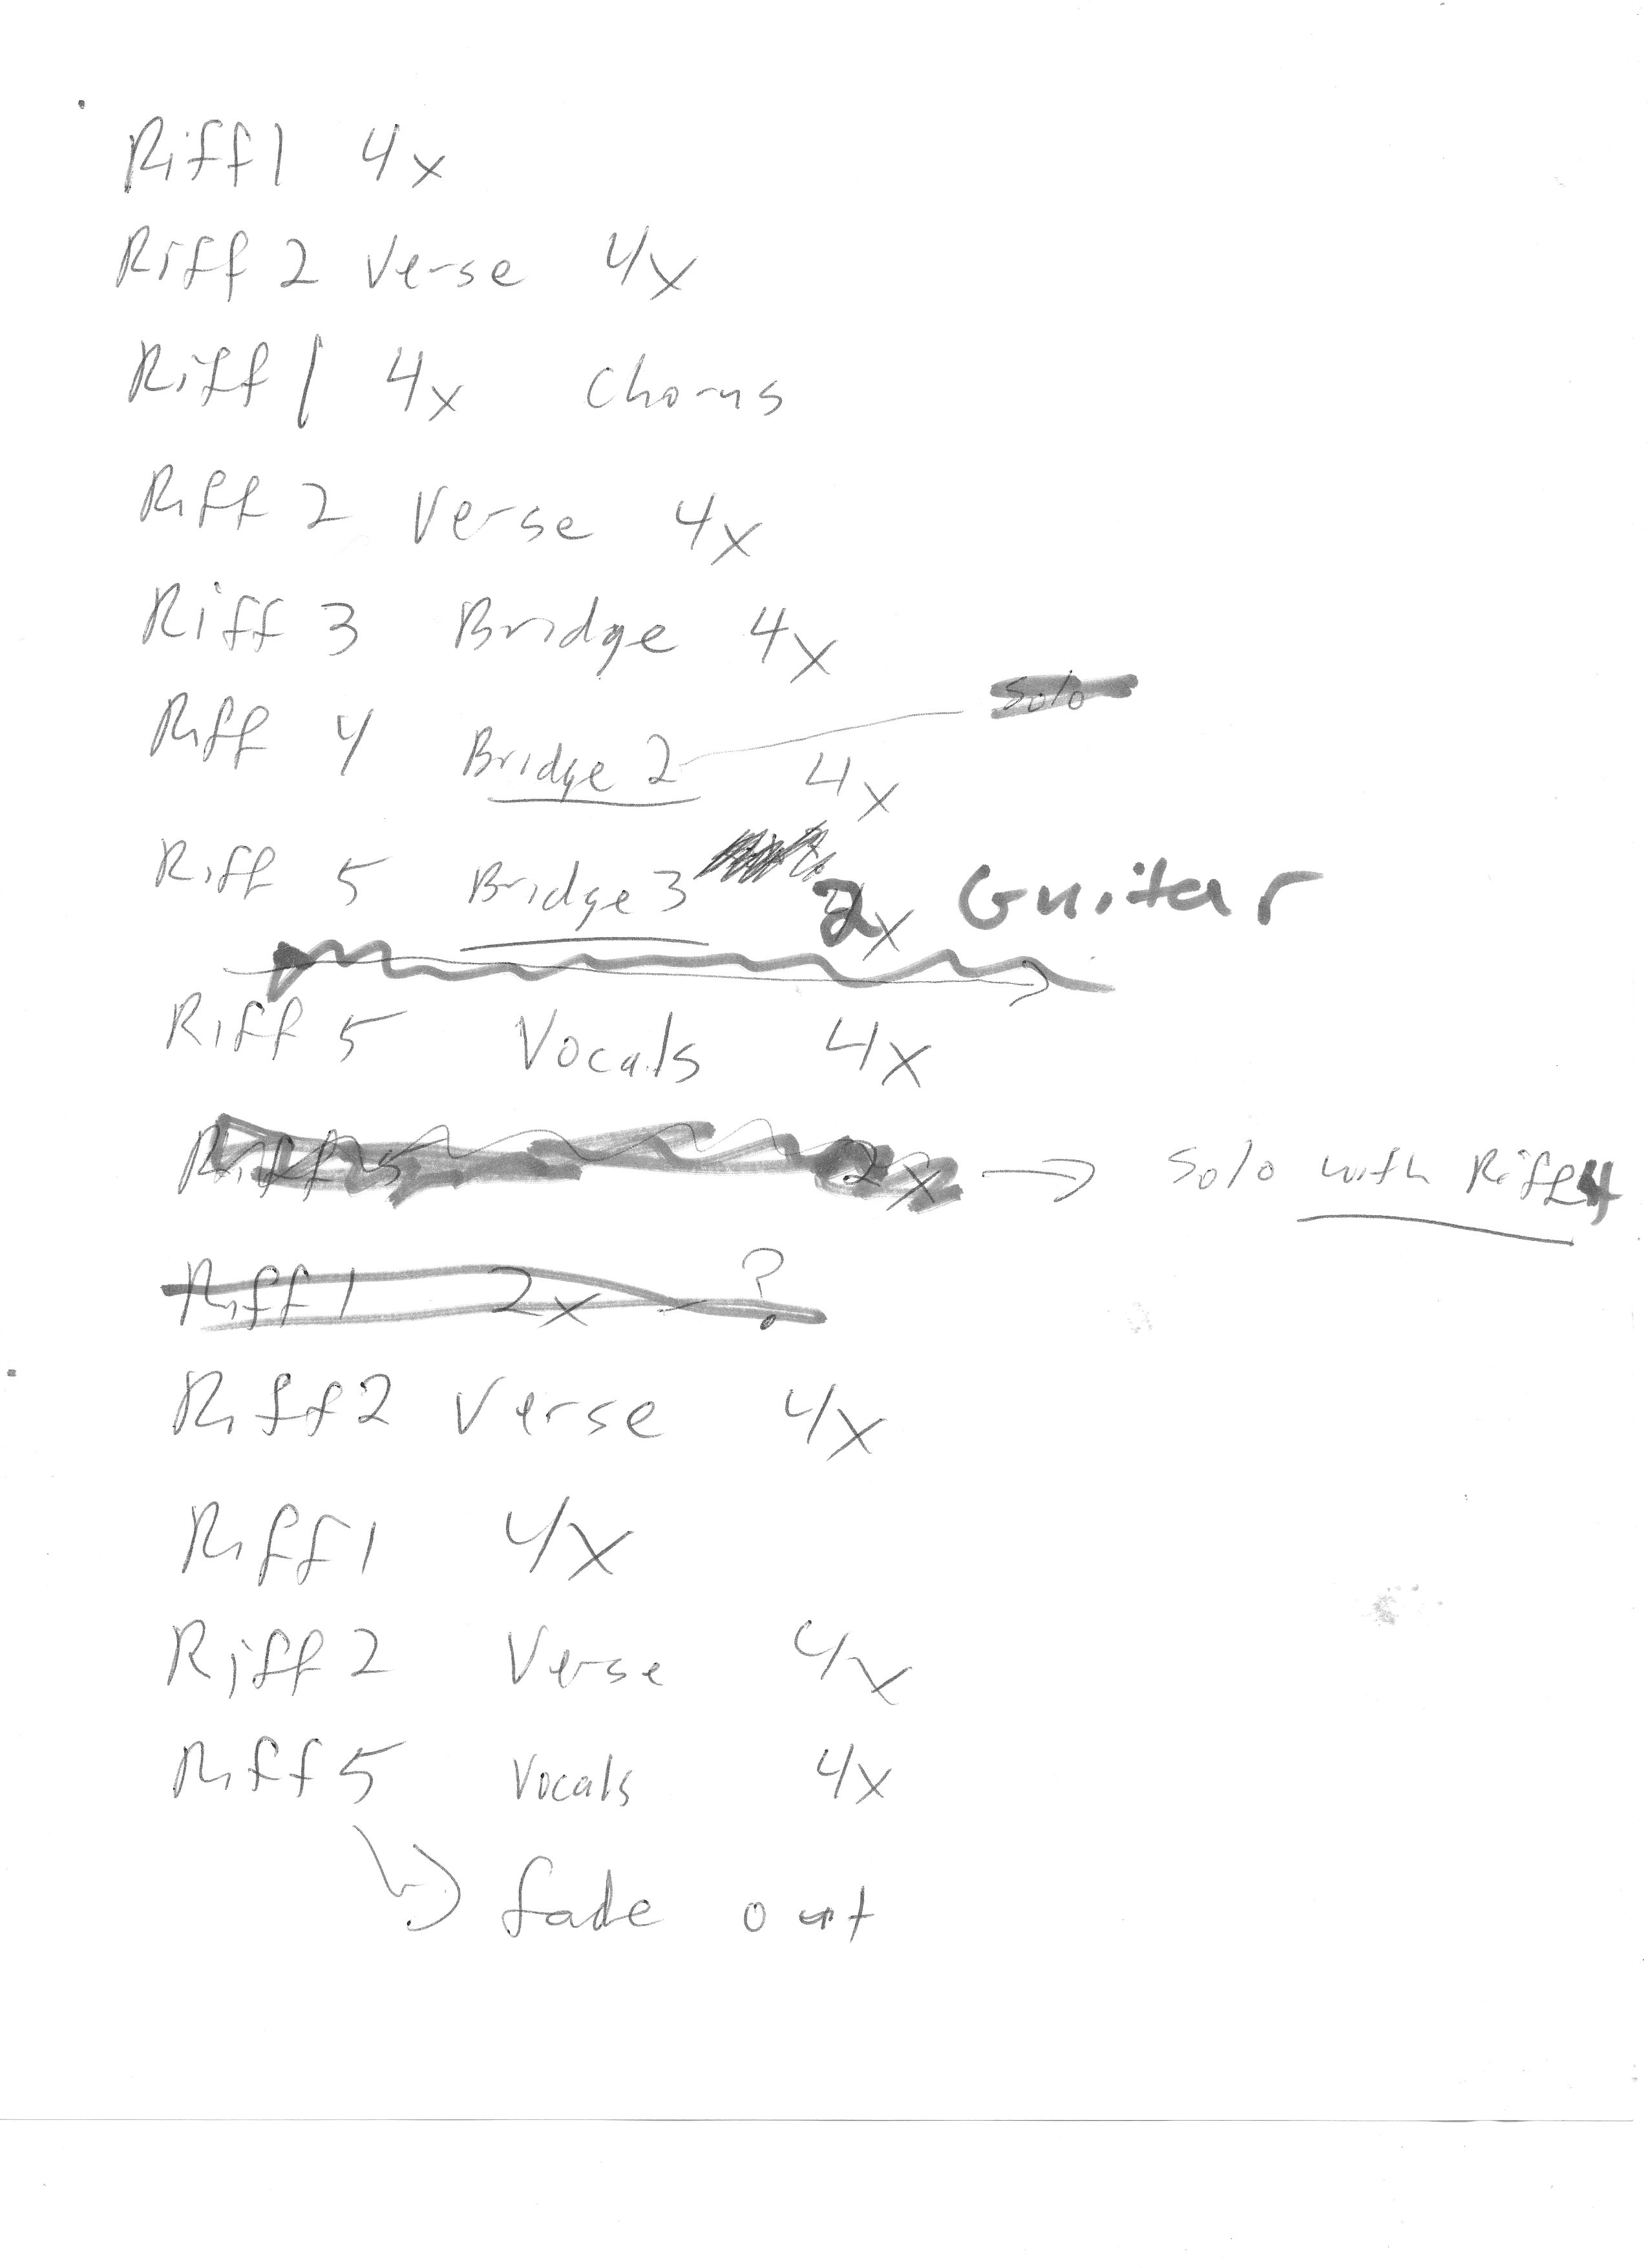 Riff 1 4x
Riff 2 Verse 4x
Riff 1 4x Chorus
Riff 2 Verse 4x
Riff 3 Bridge 4x
Solo
Riff 4 Bridge 2 4x
Riff 5 Bridge 3 2x Guitar
Riff 5 Vocals 4x
Riff 5 2x → Solo with Riff 4
Riff 1 2x - ?
Riff 2 Verse 4x
Riff 1 4x
Riff 2 Verse 4x
Riff 5 Vocals 4x
fade out